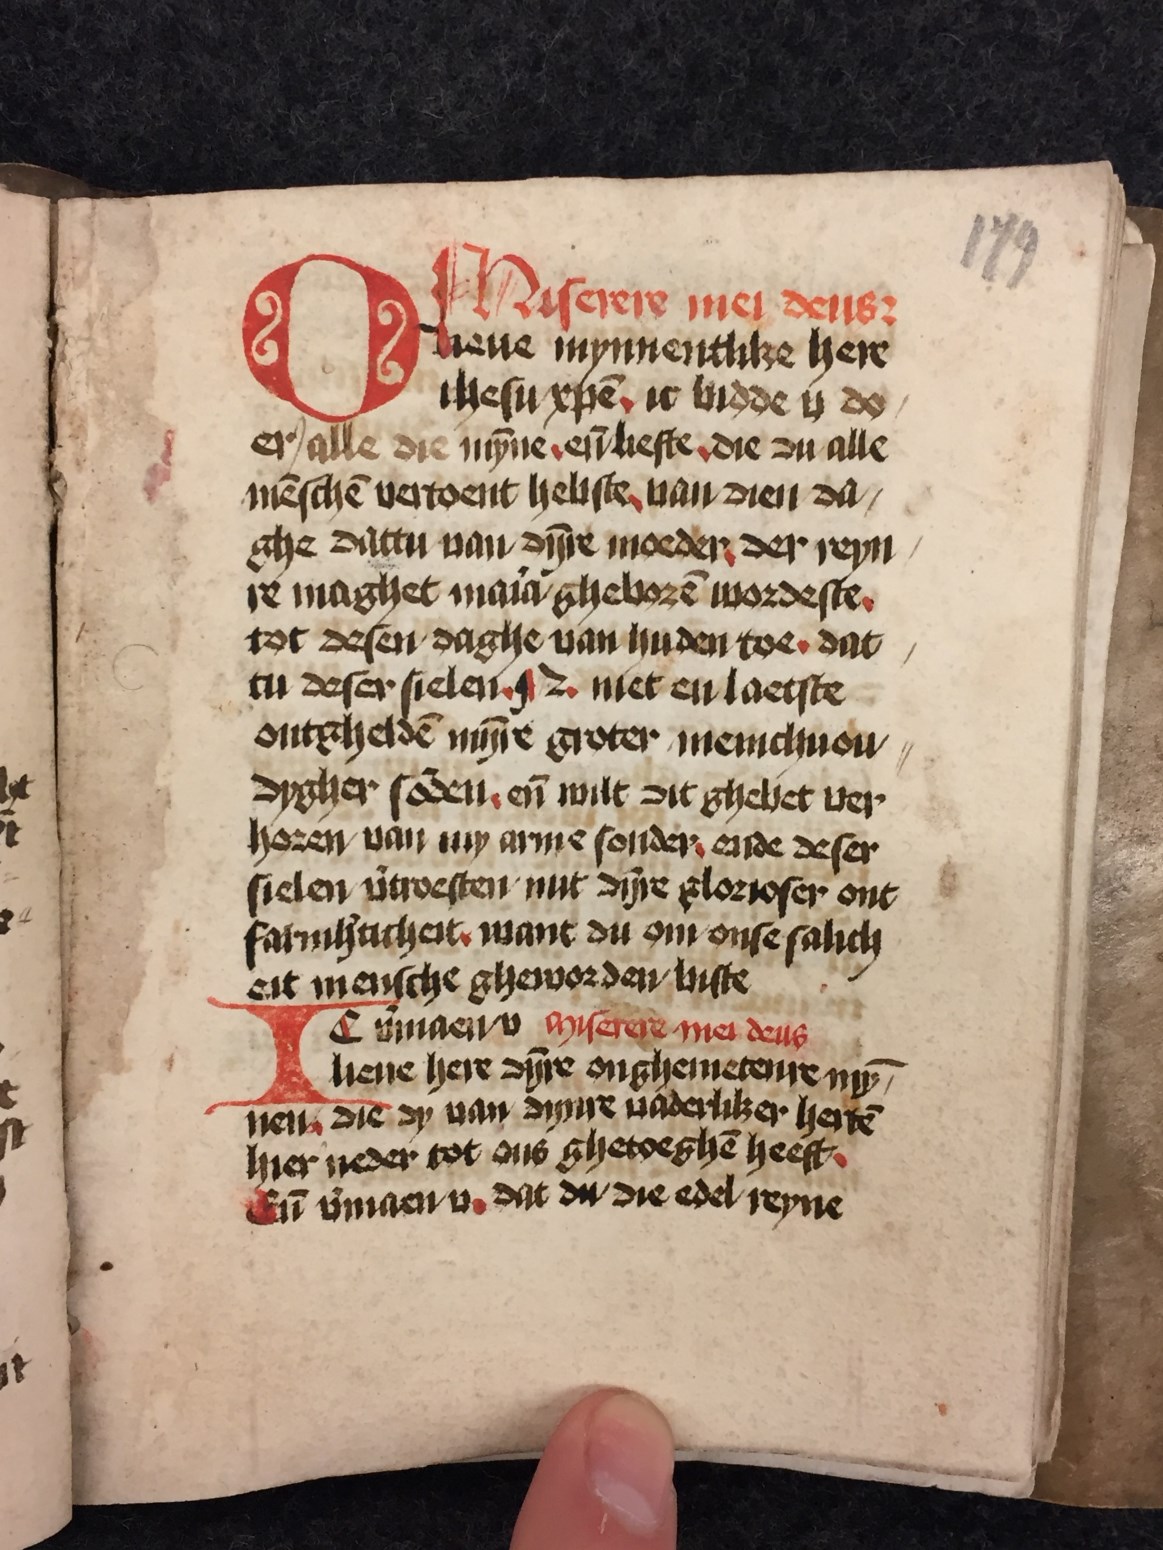 179
Miserere mei deus
O lieue mynnentlike here
ihesu xpē. ic bidde v do
er alle die mȳne. eñ liefte. die du alle
mēschē vertoent hebste. van dien da
ghe dattu van dȳre moeder. der reyn
re maghet maria gheborē wordeste.
tot desen daghe van huden toe. dat
tu deser sielen. N. niet en laetste
ontgheldē mȳre groter menichuou
dygher sōden. eñ wilt dit ghebet ver
horen van my arme sonder. ende deser
sielen v̄troesten mit dȳre glorioser ont
farmh̄ticheit. want du om onse salich
eit mensche gheworden biste
IC v̄maen v Miserere mei deus
lieue here dȳre onghemetenre mȳ
nen. die dy van dynre vaderliker hertē
hier neder tot ons ghetoeghē heeft.
Eñ v̄maen v. dat du die edel reyne